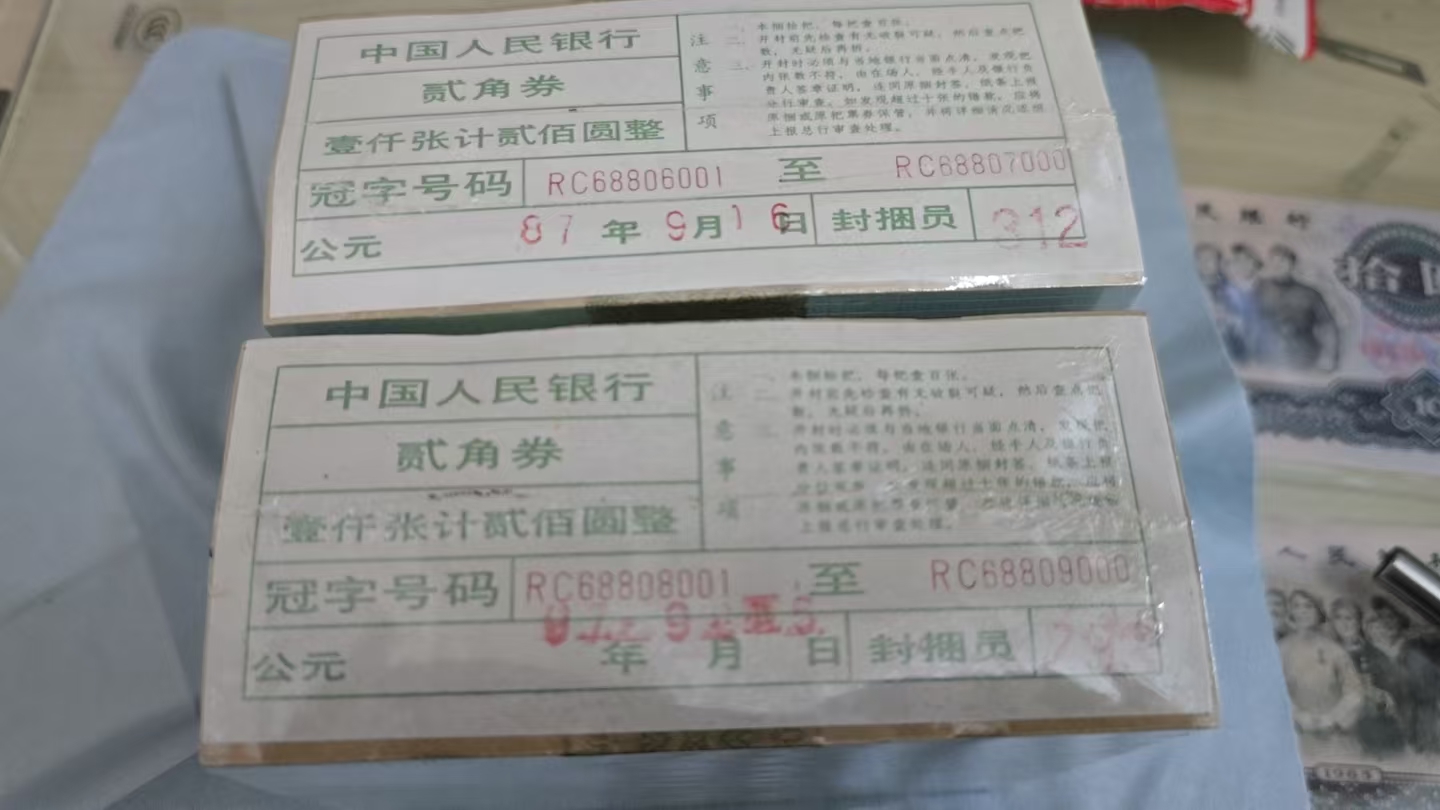 中国人民银行
贰角券
壹仟张计贰佰圆整
注意事项
一、本捆拾把，每把壹百张。
二、开封前先检查有无破裂可疑，然后查点把
数，无疑后再拆。
三、开封时必须与当地银行当面点清，发现把
内张数不符，由在场人、经手人及银行负
责人签章证明，连同原捆封签、纸条上报
分行审查。如发现超过十张的错款，应将
原捆或原把票券保管，并将详细情况逐级
上报总行审查处理。
冠字号码 RC68806001 至 RC68807000
公元 87年9月16日 封捆员 312
中国人民银行
贰角券
壹仟张计贰佰圆整
注意事项
本捆拾把，每把壹百张。
开封前先检查有无破裂可疑，然后查点把
数，无疑后再拆。
开封时必须与当地银行当面点清，发现把
内张数不符，由在场人、经手人及银行负
责人签章证明，连同原捆封签、纸条上报
上报总行审查处理。
冠字号码 RC68808001 至 RC68809000
公元 年 月 日 封捆员
民银行
拾
10
人民
1965